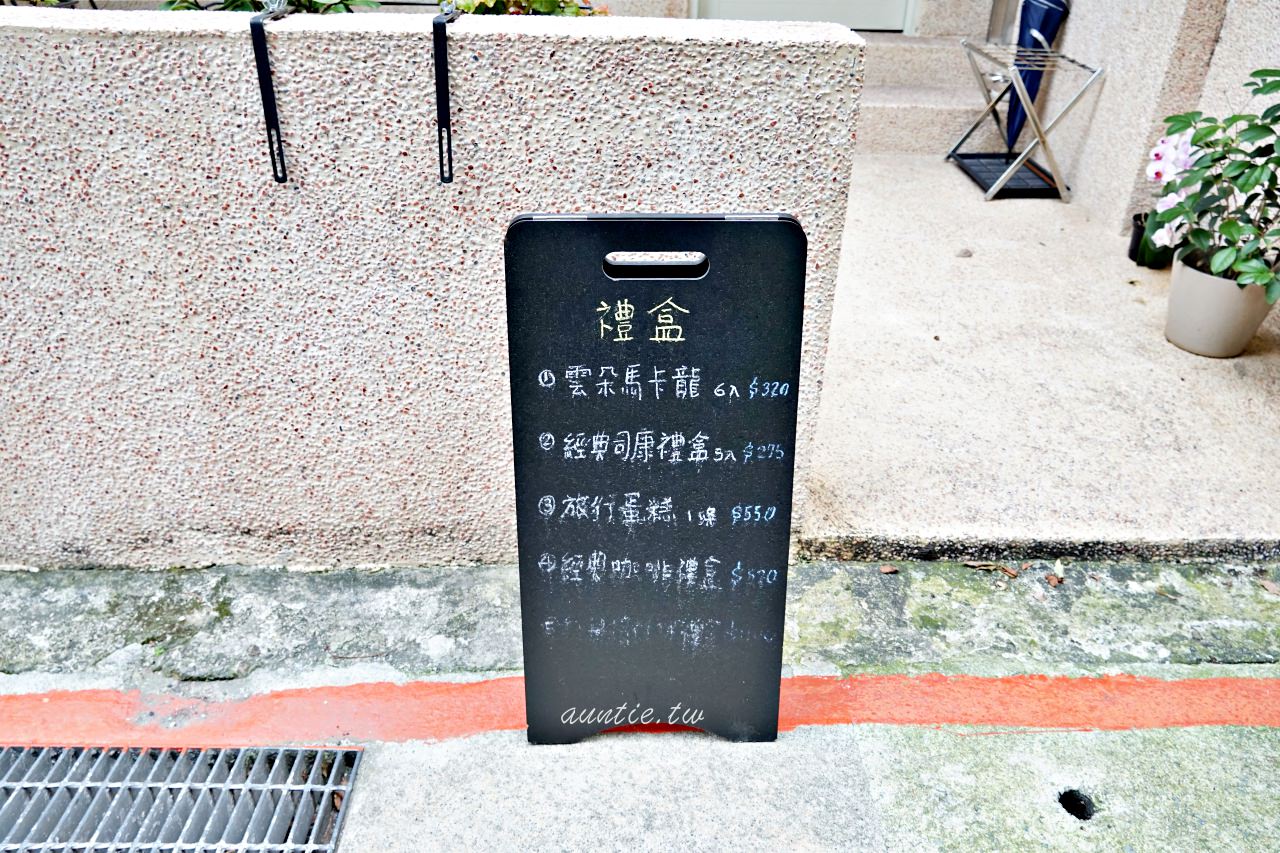 禮盒
① 雲朵馬卡龍 6入 $320
② 經典司康禮盒 5入 $275
③ 旅行蛋糕 1條 $550
④ 經典咖啡禮盒
auntie.tw